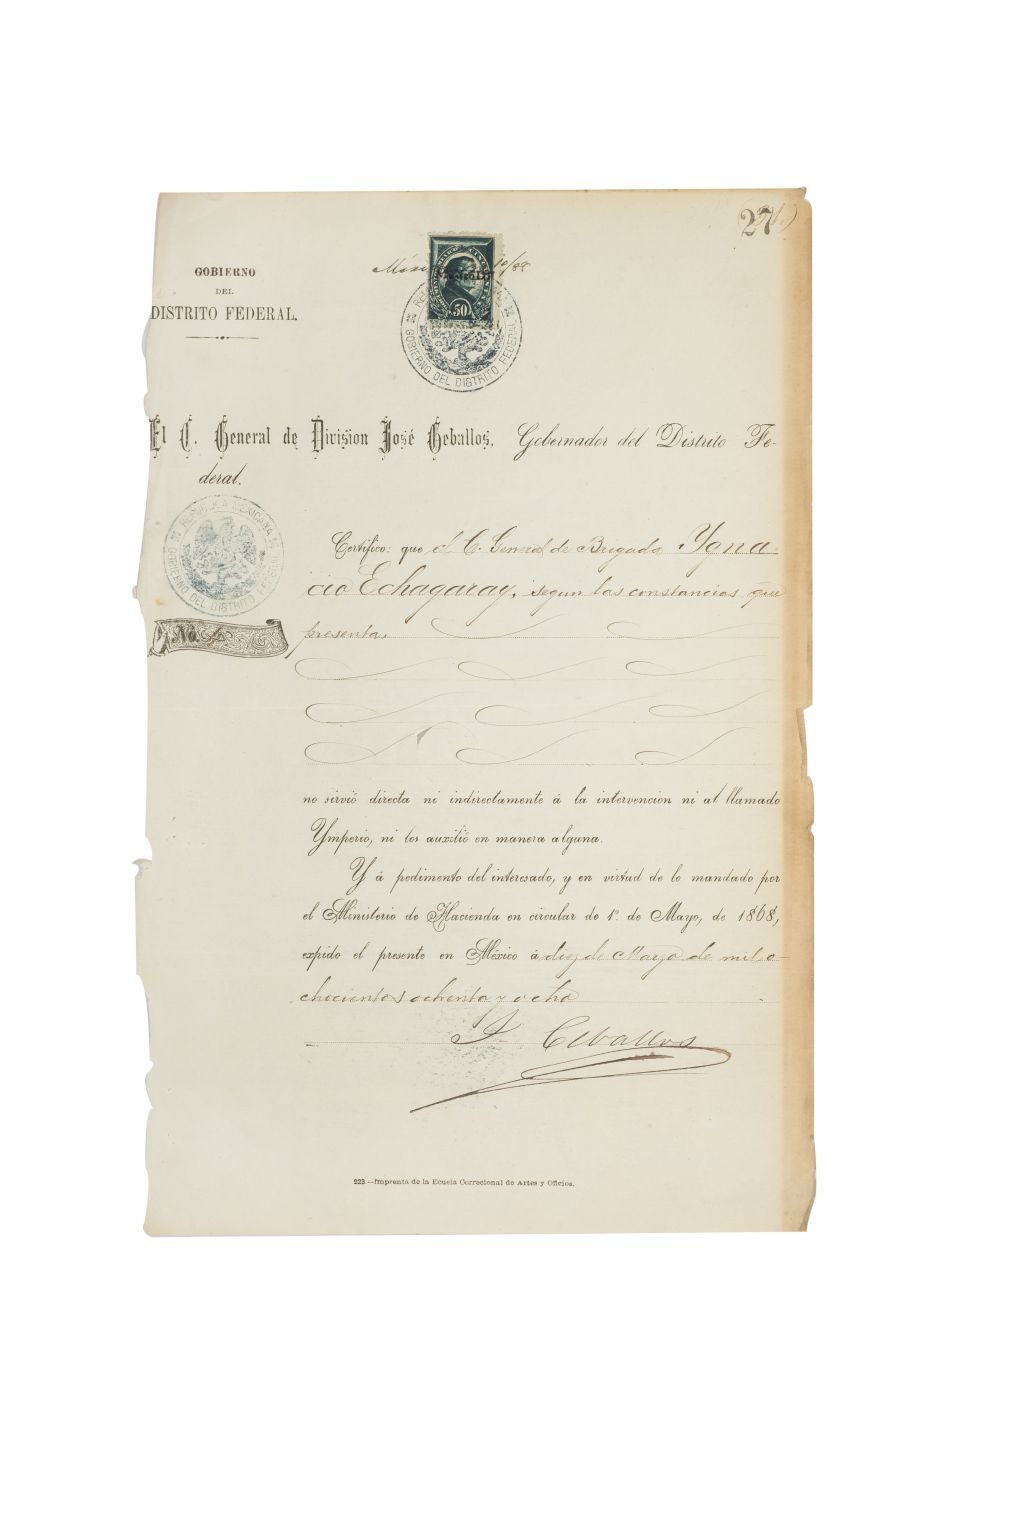 27
GOBIERNO
DEL
DISTRITO FEDERAL.
50
REPUBLICA MEXICANA
GOBIERNO DEL DISTRITO FEDERAL
El C. General de Division José Ceballos, Gobernador del Distrito Fe-
deral.
REPUBLICA MEXICANA
GOBIERNO DEL DISTRITO FEDERAL
Certifico: que el C. General de Brigada Ygna-
cio Echagaray, segun las constancias que
No.
presenta,
no sirvió directa ni indirectamente á la intervencion ni al llamado
Ymperio, ni los auxilió en manera alguna.
Y á pedimento del interesado, y en virtud de lo mandado por
el Ministerio de Hacienda en circular de 1º. de Mayo, de 1868,
expido el presente en México á diez de Mayo de mil o-
chocientos ochenta y ocho
J Ceballos
223.—Imprenta de la Escuela Correccional de Artes y Oficios.